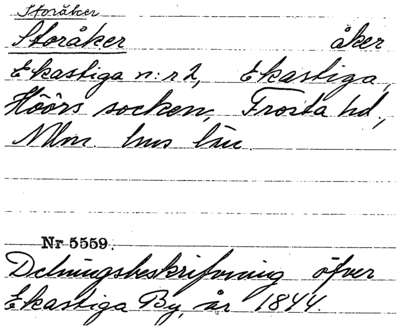 Storåker
Storåker åker
Ekastiga n:r 2, Ekastiga,
Höörs socken, Frosta hd,
Mlm. hus län.
Nr 5559.
Delningsbeskrifvning öfver
Ekastiga By, år 1844.